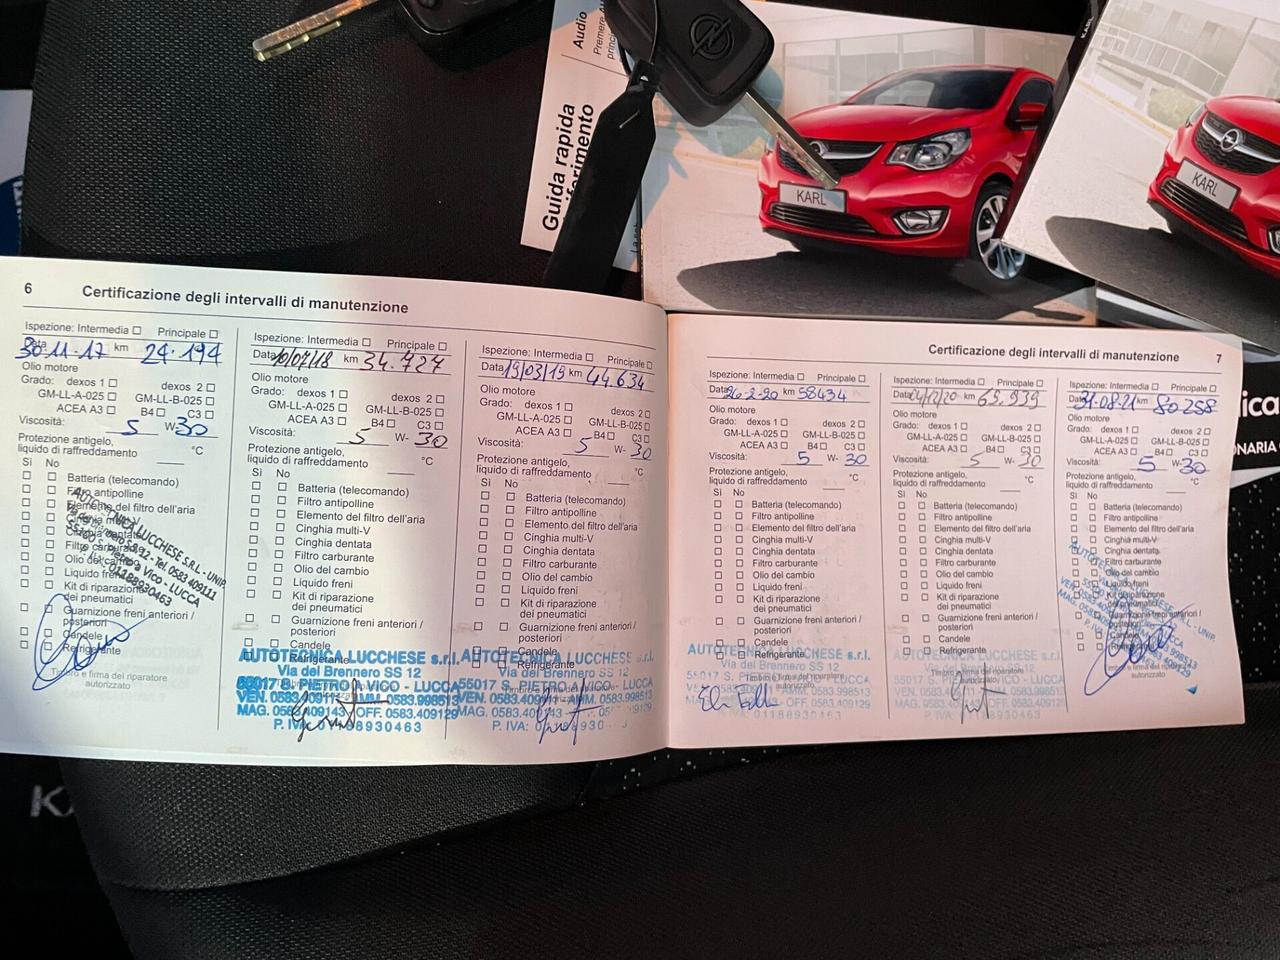 Audio
Premere
Guida rapida
riferimento
KARL
KARL
KARL
6
Certificazione degli intervalli di manutenzione
Ispezione: Intermedia ☐ Principale ☐
Data 30.11.17 km 24.194
Olio motore
Grado: dexos 1 ☐ dexos 2 ☐
GM-LL-A-025 ☐ GM-LL-B-025 ☐
ACEA A3 ☐ B4 ☐ C3 ☐
Viscosità: 5 W- 30
Protezione antigelo,
liquido di raffreddamento °C
Sì No
Batteria (telecomando)
Filtro antipolline
Elemento del filtro dell'aria
Cinghia multi-V
Cinghia dentata
Filtro carburante
Olio del cambio
Liquido freni
Kit di riparazione
dei pneumatici
Guarnizione freni anteriori /
posteriori
Candele
Refrigerante
Timbro e firma del riparatore
autorizzato
AUTOTECNICA LUCCHESE S.R.L. - UNIP.
Tel. 0583 409111
S. Pietro a Vico - LUCCA
01188930463
Ispezione: Intermedia ☐ Principale ☐
Data 10/07/18 km 34.727
Olio motore
Grado: dexos 1 ☐ dexos 2 ☐
GM-LL-A-025 ☐ GM-LL-B-025 ☐
ACEA A3 ☐ B4 ☐ C3 ☐
Viscosità: 5 W- 30
Protezione antigelo,
liquido di raffreddamento °C
Sì No
Batteria (telecomando)
Filtro antipolline
Elemento del filtro dell'aria
Cinghia multi-V
Cinghia dentata
Filtro carburante
Olio del cambio
Liquido freni
Kit di riparazione
dei pneumatici
Guarnizione freni anteriori /
posteriori
Candele
Refrigerante
AUTOTECNICA LUCCHESE s.r.l.
Via del Brennero SS 12
55017 S. PIETRO A VICO - LUCCA
VEN. 0583.409111 - AMM. 0583.998513
MAG. 0583.409143 - OFF. 0583.409129
P. IVA: 01188930463
Ispezione: Intermedia ☐ Principale ☐
Data 19/03/19 km 44.634
Olio motore
Grado: dexos 1 ☐ dexos 2 ☐
GM-LL-A-025 ☐ GM-LL-B-025 ☐
ACEA A3 ☐ B4 ☐ C3 ☐
Viscosità: 5 W- 30
Protezione antigelo,
liquido di raffreddamento °C
Sì No
Batteria (telecomando)
Filtro antipolline
Elemento del filtro dell'aria
Cinghia multi-V
Cinghia dentata
Filtro carburante
Olio del cambio
Liquido freni
Kit di riparazione
dei pneumatici
Guarnizione freni anteriori /
posteriori
Candele
Refrigerante
AUTOTECNICA LUCCHESE s.r.l.
Via del Brennero SS 12
55017 S. PIETRO A VICO - LUCCA
AMM. 0583.998513
MAG. 0583.409143 - OFF. 0583.409129
P. IVA:
Certificazione degli intervalli di manutenzione
7
Ispezione: Intermedia ☐ Principale ☐
Data 26-2-20 km 58434
Olio motore
Grado: dexos 1 ☐ dexos 2 ☐
GM-LL-A-025 ☐ GM-LL-B-025 ☐
ACEA A3 ☐ B4 ☐ C3 ☐
Viscosità: 5 W- 30
Protezione antigelo,
liquido di raffreddamento °C
Sì No
Batteria (telecomando)
Filtro antipolline
Elemento del filtro dell'aria
Cinghia multi-V
Cinghia dentata
Filtro carburante
Olio del cambio
Liquido freni
Kit di riparazione
dei pneumatici
Guarnizione freni anteriori /
posteriori
Candele
Refrigerante
Timbro e firma del riparatore
autorizzato
AUTOTECNICA LUCCHESE s.r.l.
Via del Brennero SS 12
55017 S. PIETRO A VICO - LUCCA
AMM. 0583.998513
OFF. 0583.409129
01188930463
Ispezione: Intermedia ☐ Principale ☐
Data 04/12/20 km 65.939
Olio motore
Grado: dexos 1 ☐ dexos 2 ☐
GM-LL-A-025 ☐ GM-LL-B-025 ☐
ACEA A3 ☐ B4 ☐ C3 ☐
Viscosità: 5 W- 30
Protezione antigelo,
liquido di raffreddamento °C
Sì No
Batteria (telecomando)
Filtro antipolline
Elemento del filtro dell'aria
Cinghia multi-V
Cinghia dentata
Filtro carburante
Olio del cambio
Liquido freni
Kit di riparazione
dei pneumatici
Guarnizione freni anteriori /
posteriori
Candele
Refrigerante
Timbro e firma del riparatore
autorizzato
AUTOTECNICA LUCCHESE s.r.l.
Via del Brennero SS 12
Ispezione: Intermedia ☐ Principale ☐
Data 31.08.21 km 80258
Olio motore
Grado: dexos 1 ☐ dexos 2 ☐
GM-LL-A-025 ☐ GM-LL-B-025 ☐
ACEA A3 ☐ B4 ☐ C3 ☐
Viscosità: 5 W- 30
Protezione antigelo,
liquido di raffreddamento °C
Sì No
Batteria (telecomando)
Filtro antipolline
Elemento del filtro dell'aria
Cinghia multi-V
Cinghia dentata
Filtro carburante
Olio del cambio
Liquido freni
Kit di riparazione
dei pneumatici
Guarnizione freni anteriori /
posteriori
Candele
Refrigerante
Timbro e firma del riparatore
autorizzato